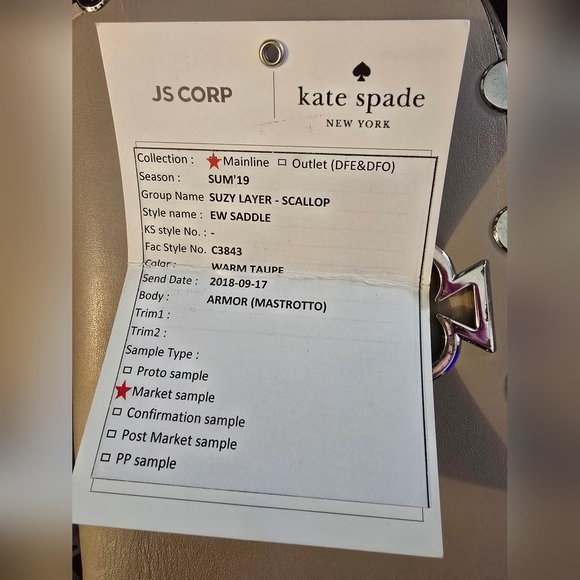 JS CORP
kate spade
NEW YORK
Collection : Mainline Outlet (DFE&DFO)
Season : SUM'19
Group Name SUZY LAYER - SCALLOP
Style name : EW SADDLE
KS style No. : -
Fac Style No. C3843
Color : WARM TAUPE
Send Date : 2018-09-17
Body : ARMOR (MASTROTTO)
Trim1 :
Trim2 :
Sample Type :
Proto sample
Market sample
Confirmation sample
Post Market sample
PP sample